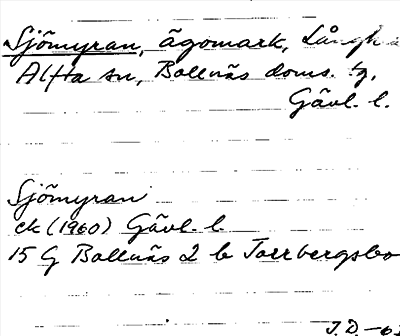 Sjömyran, ägomark, Långh
Alfta sn, Bollnäs doms. tg,
Gävl. l.
Sjömyran
ek (1960) Gävl. l.
15 G Bollnäs 2 b Torrbergsbo
J.D.-6